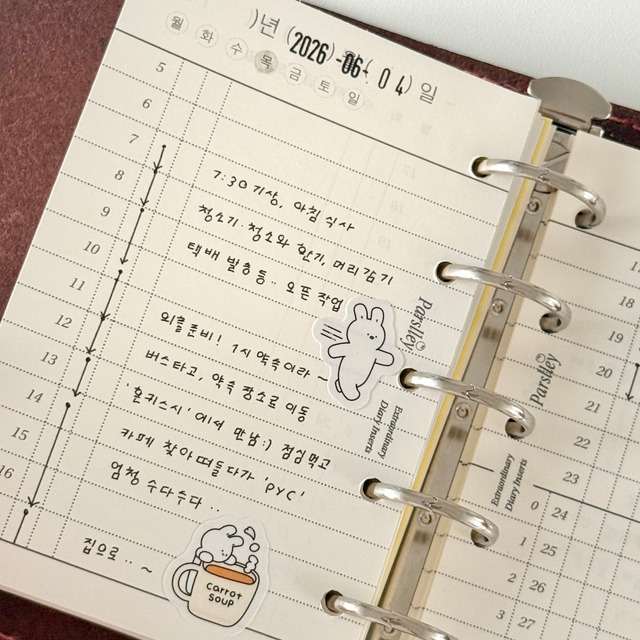 )년 (2026)-06-(04)일
월 화 수 목 금 토 일
5
6
7
8
9
10
11
12
13
14
15
16
7:30 기상, 아침식사
청소기 청소와 환기, 머리감기
택배 발송 등.. 오픈 작업
외출준비! 1시 약속이라~
버스타고, 약속 장소로 이동
'홍키스시' 에서 만남:) 점심먹고
카페 찾아떠돌다가 'PYC'
엄청 수다수다..
집으로..~
carrot
soup
Parstley
Extraordinary
Diary Inserts
Parstley
Extraordinary
Diary Inserts
18
19
20
21
22
23
0 24
1 25
2 26
3 27